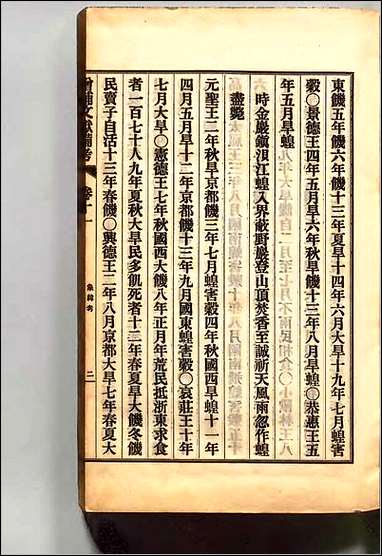 東饑五年饑六年饑十三年夏旱十四年六月大旱十九年七月蝗害
穀○景德王四年五月旱六年秋旱饑十三年八月旱蝗○恭惠王五
年五月旱蝗
時金巖鎭浿江蝗入界蔽野巖登山頂焚香至誠祈天風雨忽作蝗
盡斃
元聖王二年秋旱京都饑三年旱京都蝗害穀四年秋國西旱蝗十一年
四月五月旱十二年京都饑十三年九月國東蝗害穀○哀莊王十年
七月大旱○憲德王七年秋國西大饑八年正月年荒民抵浙東求食
者一百七十人九年夏秋大旱民多飢死者十二年春夏旱大饑冬饑
民賣子自活十三年春饑○興德王二年八月京都大旱七年春夏大
增補文獻備考 卷十一 象緯考 二